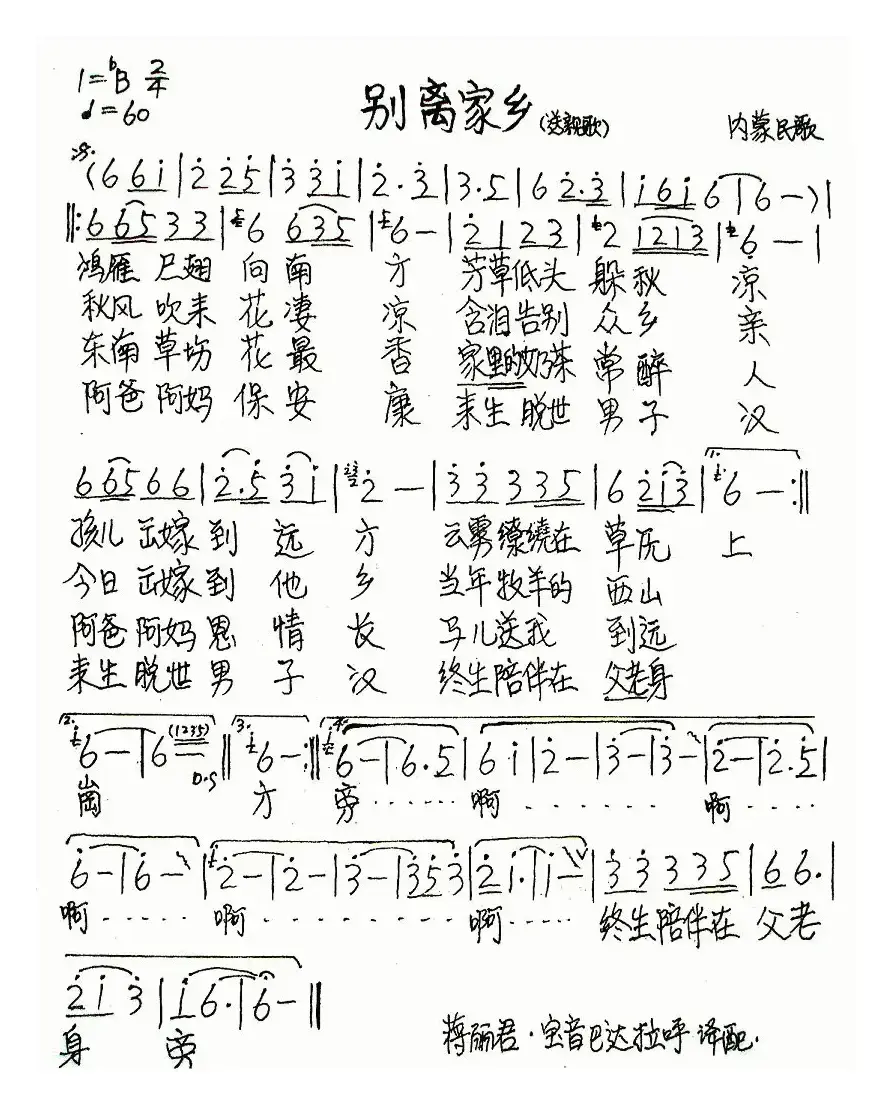 1=♭B 2/4
♩=60
别离家乡(送亲歌)
内蒙民歌
(6 6 i | 2 2 5 | 3 3 i | 2 . 3 | 3 . 5 | 6 2 . 3 | i 6 i 6 | 6 — ) |
‖: 6 6 5 3 3 | 6 6 3 5 | 6 — | 2 1 2 3 | 2 1 2 1 3 | 6 — |
鸿雁 尺翅 向 南 方 芳草低头 躲 秋 凉
秋风 吹来 花 凄 凉 含泪告别 众 乡 亲
东南 草场 花 最 香 家里的奶茶 常 醉 人
阿爸 阿妈 保 安 康 来生脱世 男 子 汉
6 6 5 6 6 | 2 . 5 3 i | 2 — | 3 3 3 3 5 | 6 2 i 3 | 1. 6 — :‖
孩儿 出嫁 到 远 方 云雾缭绕在 草原 上
今日 出嫁 到 他 乡 当年牧羊的 西山
阿爸 阿妈 恩 情 长 马儿送我 到远
来生 脱世 男 子 汉 终生陪伴在 父老身
2. 6 — | 6 (1235) — D.S ‖ 3. 6 — :‖ 4. 6 — | 6 . 5 | 6 i | 2 — | 3 — | 3 — | 2 — | 2 . 5 |
崗 方 旁 ······ 啊 ······ 啊 ····
6 — | 6 — | 2 — | 2 — | 3 — | 3 5 3 | 2 i . | i — | 3 3 3 3 5 | 6 6 . |
啊 ····· 啊 ········ 啊 ···· 终生陪伴在 父老
2 i 3 | i 6 . | 6 — ‖
身 旁
蒋丽君·宝音巴达拉呼 译配.